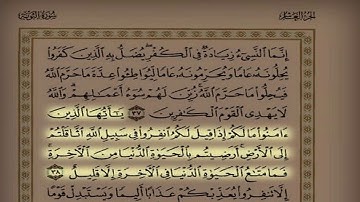 الجزء العاشر سورة التوبة
إنما النسيء زيادة في الكفر يضل به الذين كفروا
يحلونه عاما ويحرمونه عاما ليواطئوا عدة ما حرم الله
فيحلوا ما حرم الله زين لهم سوء أعمالهم والله
لا يهدي القوم الكافرين ٣٧ يا أيها الذين
ءامنوا ما لكم إذا قيل لكم انفروا في سبيل الله اثاقلتم
إلى الأرض أرضيتم بالحيوة الدنيا من الآخرة
فما متاع الحيوة الدنيا في الآخرة إلا قليل ٣٨
إلا تنفروا يعذبكم عذابا أليما ويستبدل قوما